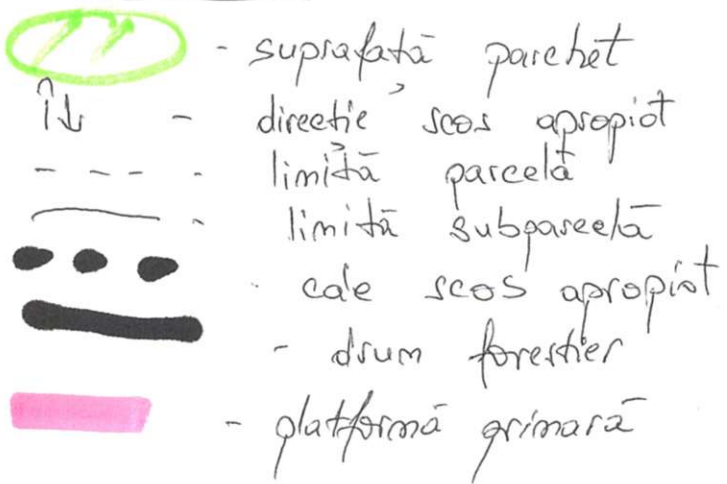 - suprafață parchet
- direcție scos apropiat
- limită parcelă
- limită subparcelă
- cale scos apropiat
- drum forestier
- platformă primară